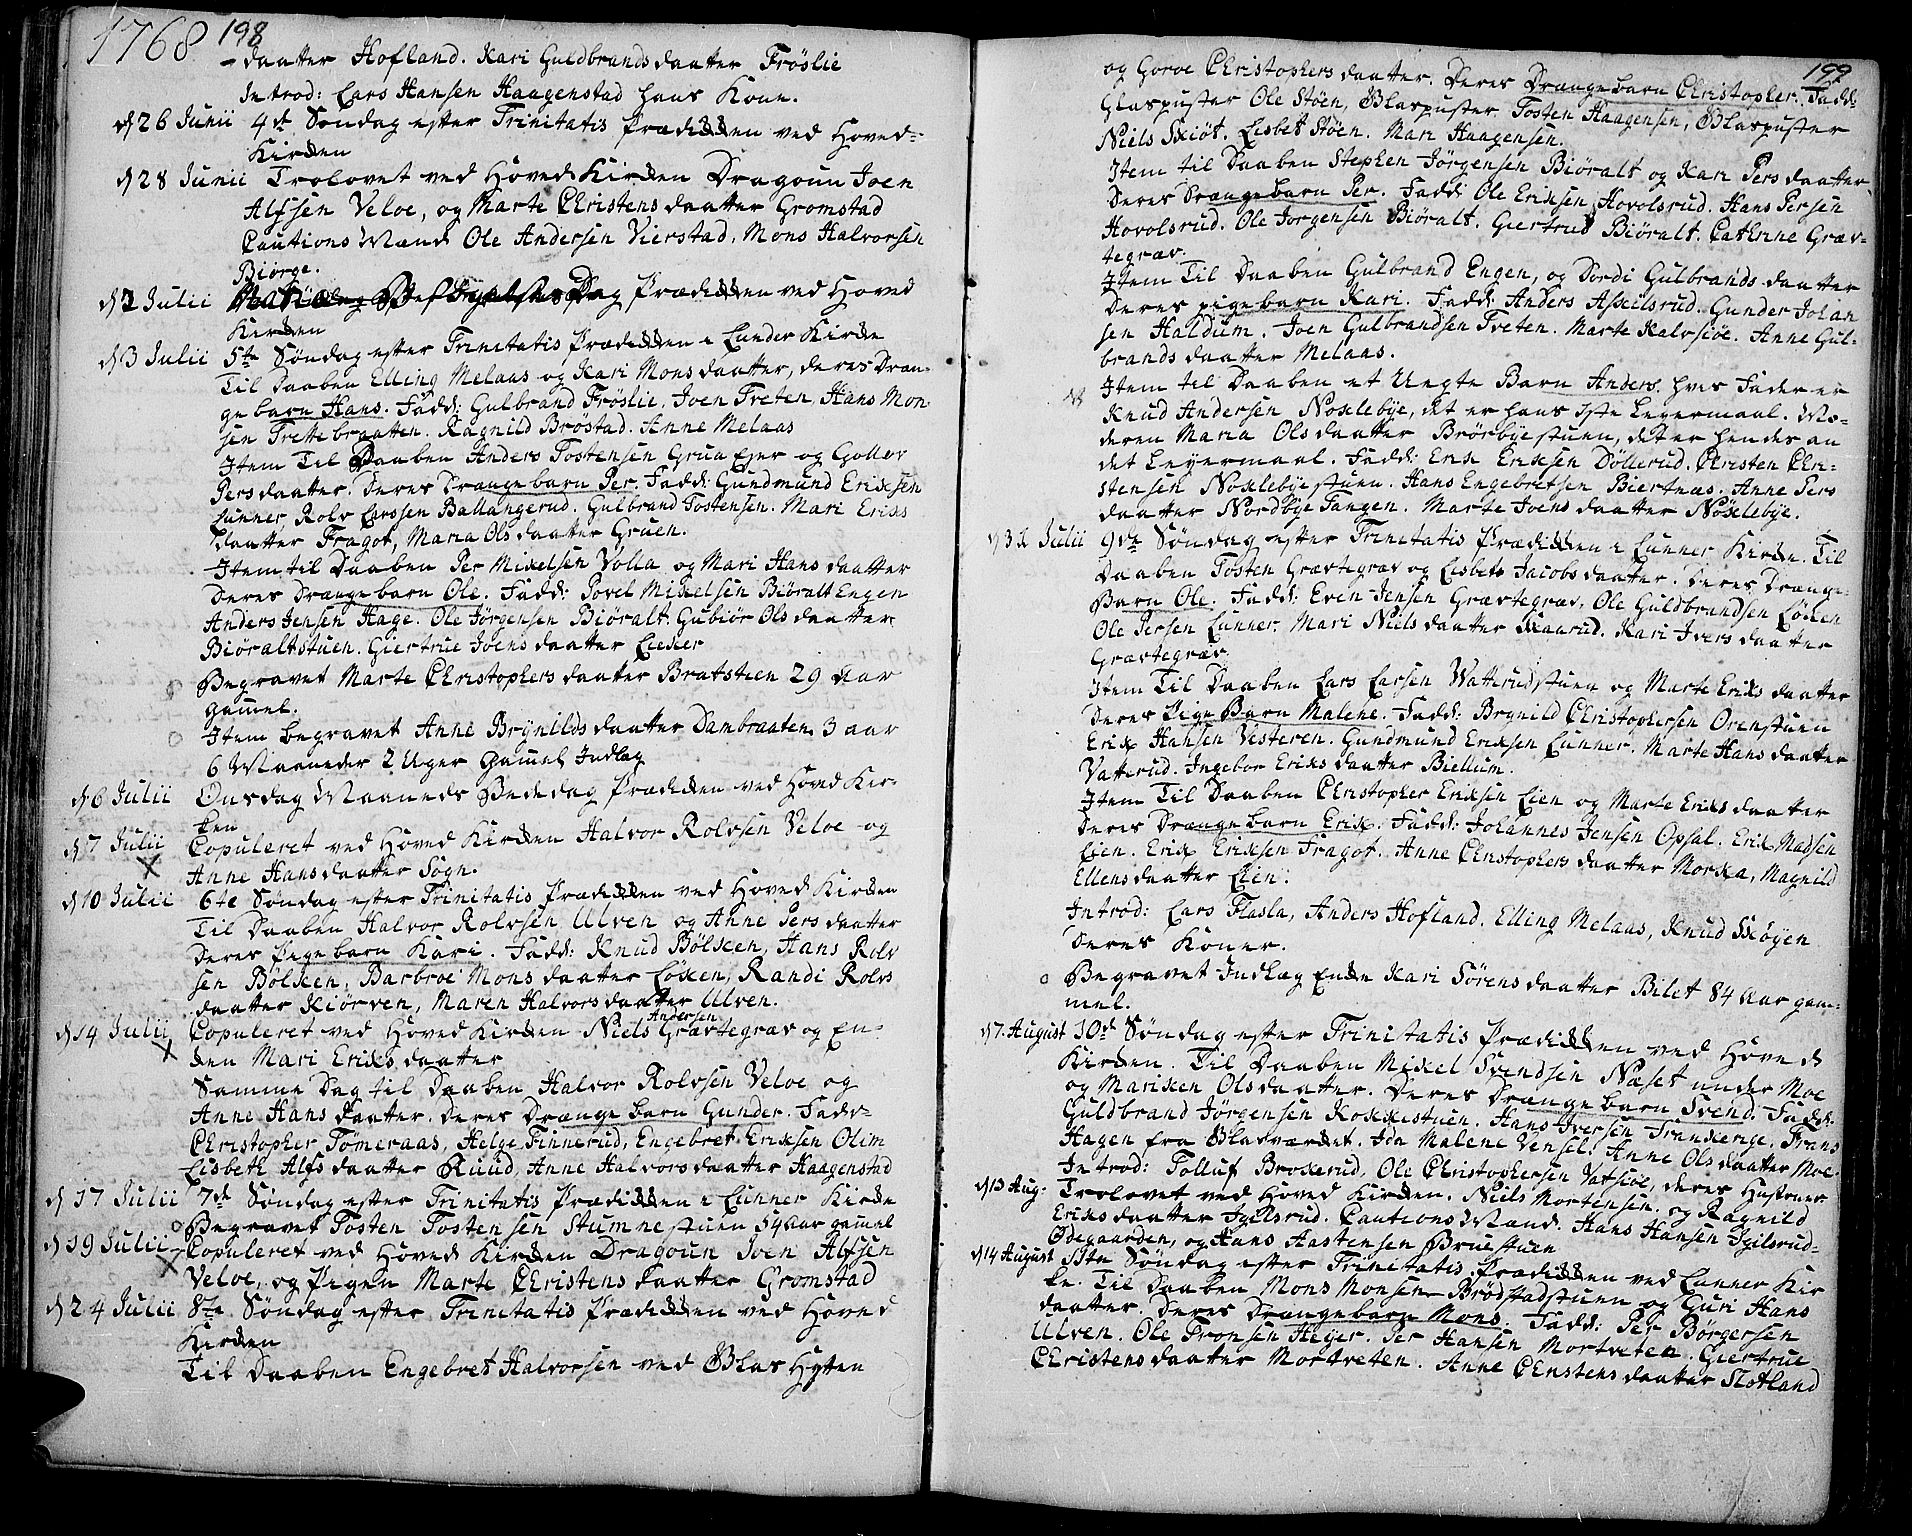 1768 198
-daatter Hofland. Kari Guldbrands daatter Frøslie
Introd: Lars Hansen Haagenstad hans Kone.
d 26 Junii 4de Søndag efter Trinitatis Prædikken ved Hoved-
Kirken
d 28 Junii Trolovet ved Hoved Kirken Dragoun Joen
Alfsen Veloe, og Marte Christens daatter Gromstad
Cautions Mænd Ole Andersen Vierstad, Mons Halvorsen
Biørge.
d 2 Julii Prædikken ved Hoved
Kirken
d 3 Julii 5te Søndag efter Trinitatis Prædikken i Lunder Kirke
Til Daaben Elling Melaas og Kari Mons daatter, deres Dren-
ge barn Hans. Fadd: Gulbrand Frøslie, Joen Tveten, Hans Mon-
sen Trettebraatten. Ragnild Brøstad. Anne Melaas
Item Til Daaben Anders Tostensen Grua Ejer og Gollev
Pers daatter. Deres Drænge barn Per. Fadd: Gundmund Erixsen
Lunner, Rolv Larssen Ballangerud. Gulbrand Tostensen. Mari Erixs
daatter Fragot, Maria Ols daatter Gruen.
Item til Daaben Per Mixelsen Volla og Mari Hans daatter
Deres Drænge barn Ole. Fadd: Povel Mixelsen Biøralt Engen
Anders Jensen Hage. Ole Jørgensen Biøralt. Gubiør Ols daatter
Biøraltstuen. Giertrue Joens daatter Liexer
Begravet Marte Christophers daatter Bratstien 29 Aar
gamel.
Item begravet Anne Brynilds daatter Dambraaten 3 aar
6 Maaneder 2 Uger Gammel Jndlag
d 6 Julii Onsdag Maaneds Bededag Prædikken ved Hoved Kir-
ken
d 7 Julii Copuleret ved Hoved Kirken Halvor Rolvsen Veloe og
Anne Hans daatter Sogn.
d 10 Julii 6te Søndag efter Trinitatis Prædikken ved Hoved Kirken
Til Daaben Halvor Rolvsen Ulven og Anne Pers daatter
Deres Pige barn Kari. Fadd: Knud Bølxen, Hans Rolv
sen Bølxen, Barbroe Mons daatter Løxen, Randi Rolvs
daatter Kiørven, Maren Halvors daatter Ulven.
d 14 Julii Copuleret ved Hoved Kirken Niels Andersen Grævtegrav og En-
ken Mari Erixs daatter
Samme Dag til Daaben Halvor Rolvsen Veloe og
Anne Hans daatter. Deres Drænge barn Gunder. Fadd-
Christopher Tømeraas, Helge Finnerud, Engebret Erixsen Olim
Lisbeth Alfs daatter Ruud, Anne Halvors daatter Haagenstad
d 17 Julii 7de Søndag efter Trinitatis Prædikken i Lunner Kirke
Begravet Tosten Tostensen Stumne stuen 54 aar gamel
d 19 Julii Copuleret ved Hoved Kirken Dragoun Joen Alfsen
Veloe, og Pigen Marte Christens daatter Gromstad
d 24 Julii 8te Søndag efter Trinitatis Prædikken ved Hoved
Kirken
Til Daaben Engebret Halvorsen ved Glas Hytten
199
og Gorve Christophers daatter. Deres Drænge barn Christopher. Fadd:
Glaspuster Ole Støen, Glaspuster Tosten Haagensen, Glaspuster
Niels Skiøt. Lisbet Støen. Mari Haagensen.
Item til Daaben Stephen Jørgensen Biøralt og Kari Pers daatter
Deres Drænge barn Per. Fadd: Ole Erixsen Hovolsrud. Hans Persen
Hovolsrud. Ole Jorgensen Biøralt. Giertrud Biøralt. Cathrine Græv-
tegrav.
Item Til Daaben Gulbrand Engen, og Dordi Gulbrands daatter
Deres pige barn Kari. Fadd: Anders Asxilsrud. Gunder Johan
sen Haldum. Joen Gulbrandsen Tveten. Marte Kalvsiøe. Anne Gul-
brands daatter Melaas.
Item til Daaben et Uægte Barn Anders. hvis Fader er
Knud Andersen Noxlebye, det er hans 1ste Leyermaal. Mo-
deren Maria Ols daatter Brørbye stuen, det er hendes an
det Leyermaal. Fadd: Erix Erixsen Døllerud. Christen Chri-
stensen Noxlebye stuen. Hans Engebretsen Biertnæs. Anne Pers
daatter Nordbye Tangen. Marte Joens daatter Noxlebye.
d 31 Julii 9de Søndag efter Trinitatis Prædikken i Lunner Kirke. Til
Daaben Tosten Grævtegrav og Lisbeth Jacobs daatter. Deres Drænge-
Barn Ole. Fadd: Even Jensen Grævtegrav, Ole Guldbrandsen Løken
Ole Persen Lunner. Mari Niels daatter Skaarud. Kari Jvers daatter
Grævtegrav.
Item Til Daaben Lars Larsen Vatterudstuen og Marte Erixs daatter
Deres Pige Barn Malene. Fadd: Brynild Christophersen Orenstuen
Erix Hansen Vesteren. Gundmund Erixsen Lunner. Marte Hans daatter
Vatterud. Ingebor Erixs daatter Biellum.
Item Til Daaben Christopher Erixsen Lien og Marte Erixs daatter
Deres Drænge barn Erix. Fadd: Johannes Jensen Opsal. Erix Madsen
Lien. Erix Erixsen Fragot. Anne Christophers daatter Morxa, Magnild
Ellens daatter Lien.
Introd: Lars Flasla, Anders Hofland. Elling Melaas, Knud Skøyen
Deres Koner.
Begravet Jndlæg Enke Kari Sørens daatter Bilet 84 Aar gam-
mel.
d 7. August 10de Søndag efter Trinitatis Prædikken ved Hoved
Kirken. Til Daaben Mixel Svendsen Næset under Moe
og Marixen Ols daatter. Deres Drænge barn Svend. Fadd:
Guldbrand Jørgensen Roxxestuen. Hans Iversen Franxerige. Frans
Hagen fra Glasværket. Ida Malene Vensel. Anne Ols daatter Moe.
Introd: Tolluf Broxerud, Ole Christophersen Vatsiøe, deres Hustruer
d 13 Aug. Trolovet ved Hoved Kirken. Niels Mortensen. og Ragnild
Erixs daatter Igelsrud. Cautions Mænd. Hans Hansen Igilsrud-
Ødegaarden, og Hans Aastensen Bruestuen
d 14 August 11te Søndag efter Trinitatis Prædikken ved Lunner Kir
ke. Til Daaben Mons Monsen Brødstadstuen og Guri Hans
daatter. Deres Drængebarn Mons. Fadd: Per Børgersen
Ulven. Ole Tronsen Heyer. Per Hansen Mortveten. Giertrue
Christens daatter Mortveten. Anne Christens daatter Slotland